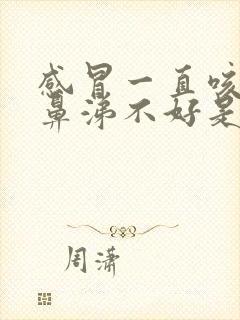 感冒一直咳
鼻涕不好是
周潇